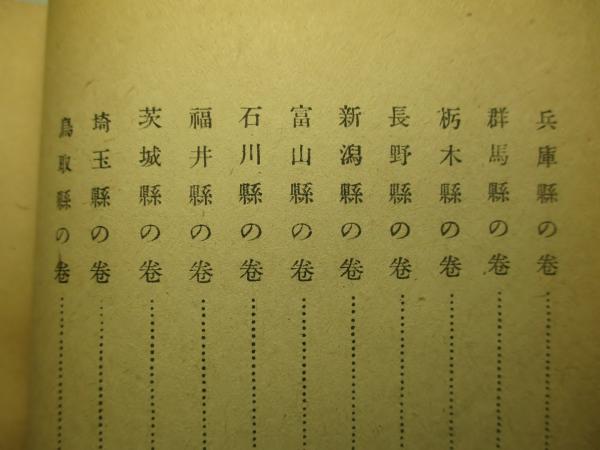 兵庫縣の卷
群馬縣の卷
栃木縣の卷
長野縣の卷
新潟縣の卷
富山縣の卷
石川縣の卷
福井縣の卷
茨城縣の卷
埼玉縣の卷
鳥取縣の卷